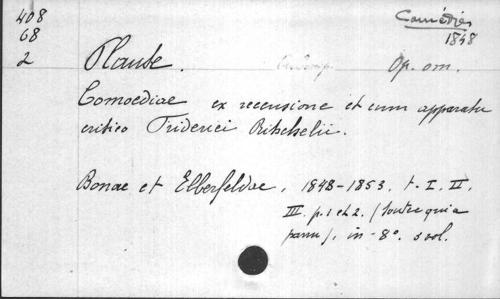 408
68
2
Comédies
1848
Plaute.
Op. om.
Comoediae ex recensione et cum apparatu
critico Friderici Ritschelii.
Bonae et Elberfeldae, 1848-1853. t. I. II.
III. p. 1 et 2. (tout ce qui a
paru), in-8°. 3 vol.